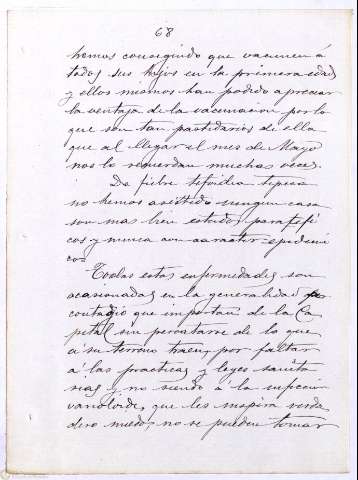 68
hemos conseguido que vacunen á
todos sus hijos en la primera edad
y ellos mismos han podido apreciar
la ventaja de la vacunacion por lo
que son tan partidarios de ella
que al llegar el mes de Mayo
nos lo recuerdan muchas veces.
De fiebre tifoidea
no hemos asistido ningun caso
son mas bien estados
cos y nunca con caracter epidemi
co=
Todas estas enfermedades son
ocasionadas en la generalidad
contagio que importan de la Ca
pital sin percatarse de lo que
á su terruno traen, por faltar
á las practicas y leyes sanita
rias y no siendo á la infeccion
varioloide, que les inspira verda
dero miedo, no se pueden tomar